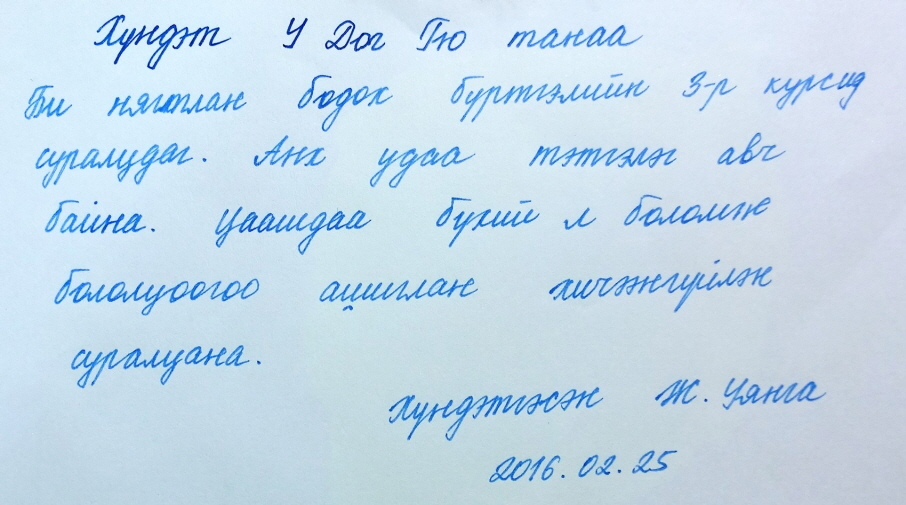 Хүндэт У Дог Гю танаа
Би нягтлан бодох бүртгэлийн 3-р курсид
суралцдаг. Анх удаа тэтгэлэг авч
байна. Цаашдаа бүхий л боломж
бололцоогоо ашиглан хичээнгүйлэн
суралцана.
Хүндэтгэсэн Ж. Уянга
2016.02.25